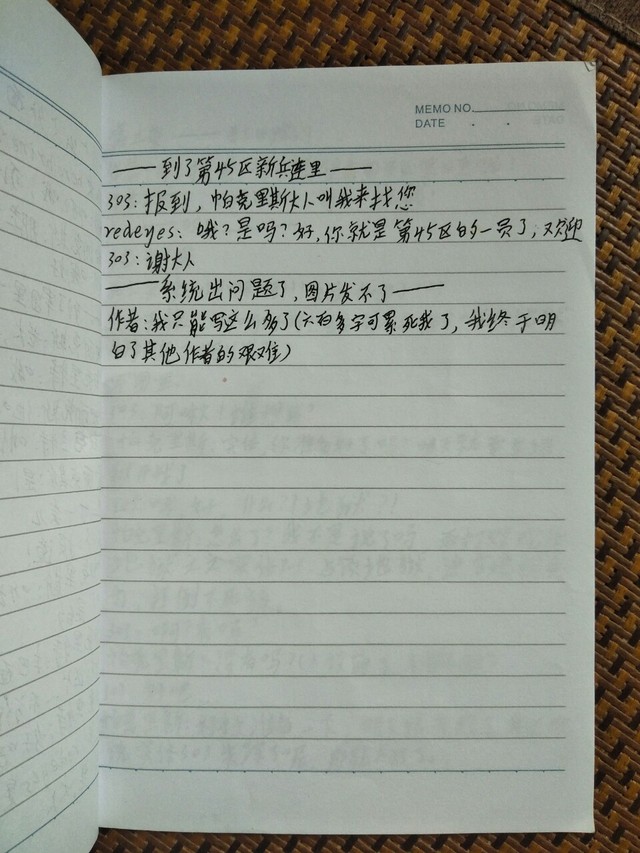 MEMO NO.
DATE . .
——到了第45区新兵连里——
303：报到，帕克里斯大人叫我来找您
redeyes：哦？是吗？好，你就是第45区的一员了，欢迎
303：谢大人
——系统出问题了，图片发不了——
作者：我只能写这么多了（六百多字可累死我了，我终于明
白了其他作者的艰难）